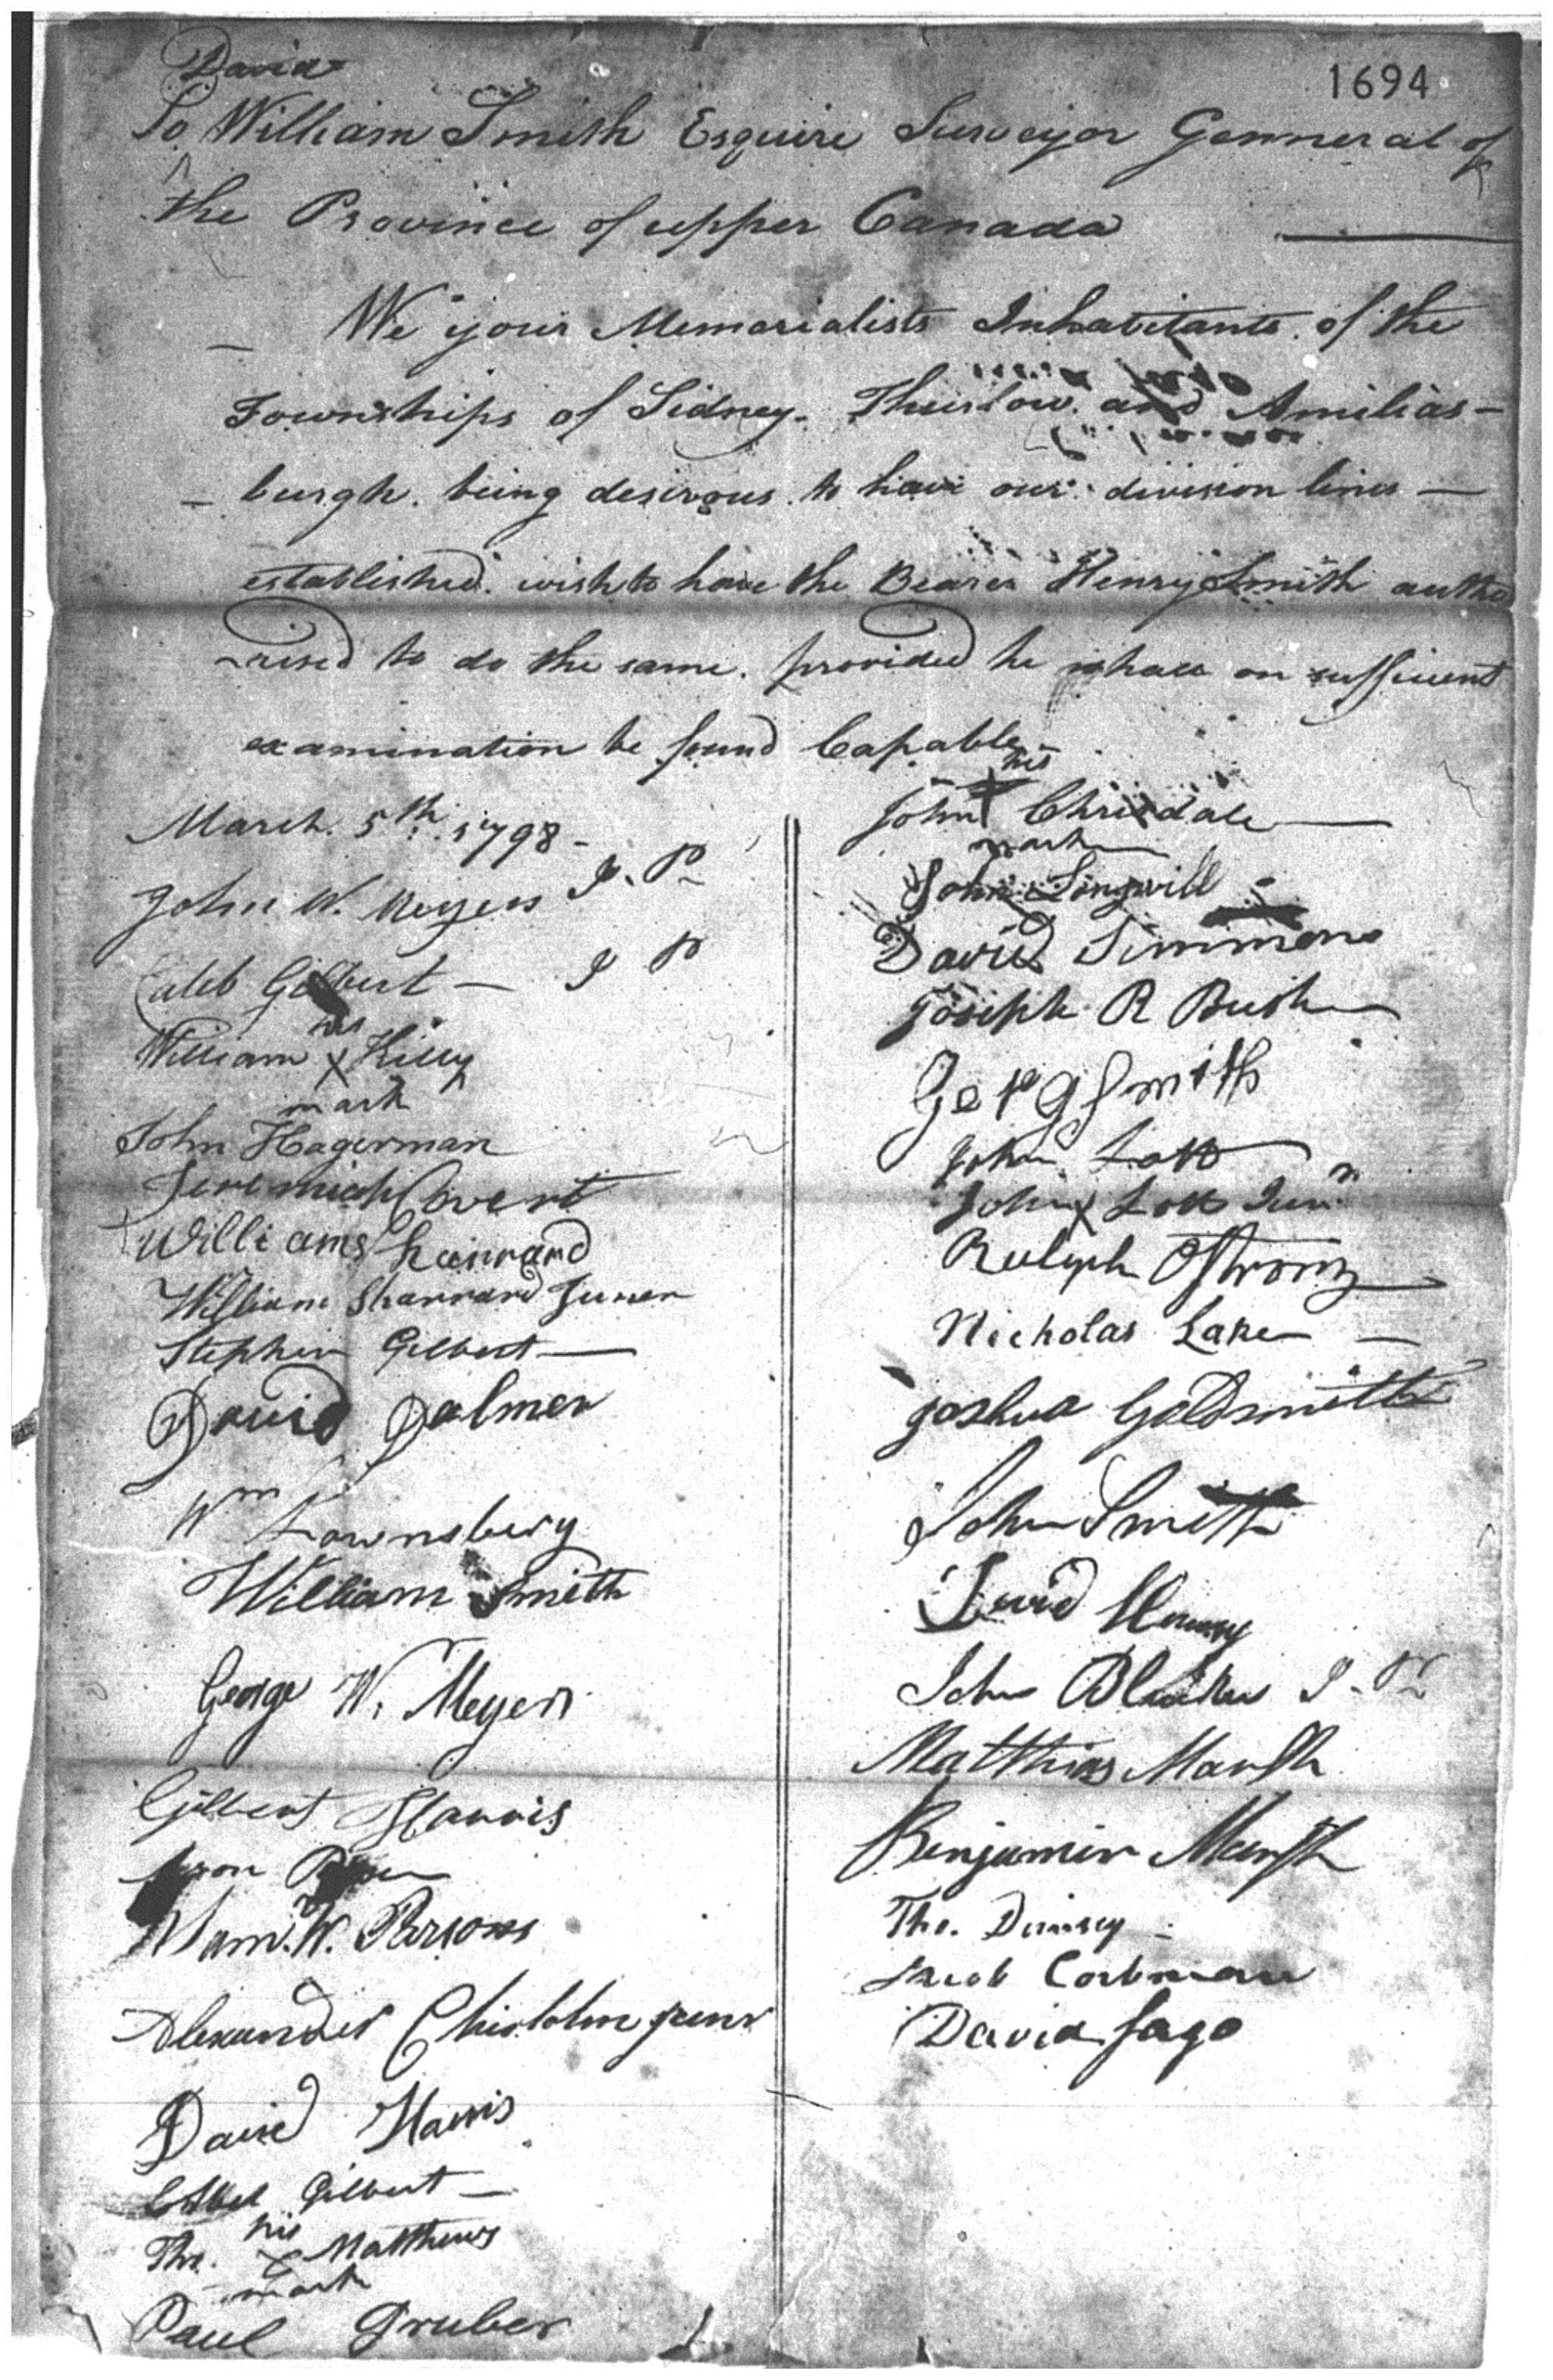 1694
David
To William Smith Esquire Surveyor Genneral of
the Province of upper Canada
We your Memorialists Inhabitants of the
Townships of Sidney. Thurlow. and Amilias-
-burgh. being desirous to have our division lines
established. wish to have the Bearer Henry Smith autho
-rised to do the same. provided he shall on sufficient
examination be found Capable
March. 5th 1798
John W. Meyers J. P
Caleb Gilbert J P
William his x mark Killy
John Hagerman
Jeremiah Covert
William Sharrard
William Sharrard Juner
Stephen Gilbert
David Palmer
Wm Lownsbery
William Smith
George W. Meyers
Gilbert Harris
W. Parsons
Alexander Chisholm
David Harris
Gilbert
Tho. his x mark Matthews
Paul Gruber
John his mark
John
David Simmons
Joseph R Bush
Smith
John Lott
John x Lott Junr
Rulyph Ostrom
Nicholas Lake
Joshua Goldsmith
John Smith
David
John Bleeker J. P
Matthias Marsh
Benjamin Marsh
Tho. Dempsey
Jacob Corbman
David Sago